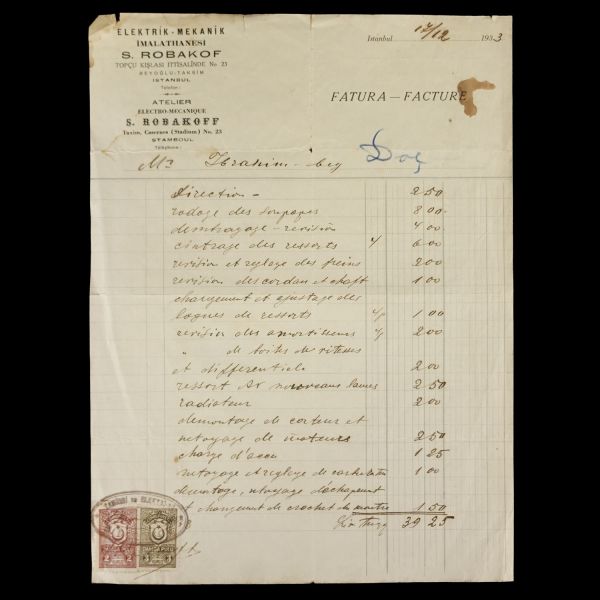 ELEKTRİK - MEKANİK
İMALATHANESİ
S. ROBAKOF
TOPÇU KIŞLASI İTTİSALİNDE No 23
BEYOĞLU-TAKSİM
ISTANBUL
Telefon:
ATELIER
ELECTRO-MECANIQUE
S. ROBAKOFF
Taxim, Casernes (Stadium) No. 23
STAMBOUL
Téléphone:
Istanbul 17/12 1933
FATURA — FACTURE
Mr Ibrahim-bey
Direction - 2 50
rodage des soupapes 8 00
demarrage - revision 4 00
cintrage des ressorts 6 00
revision et reglage des freins 2 00
revision des cardan et chaft 1 00
chargement et ajustage des
bagues de ressorts 1 00
revision des amortisseurs 2 00
" de boites de vitesses
et differentiels 2 00
ressort Ar nouveaux lames 2 50
radiateur 2 00
demontage de carteur et
netoyage de moteurs 2 50
charge d'accu 1 25
netoyage et reglage de 1 00
demontage, netoyage d'echapement
et changement de crochet de 1 50
39 25